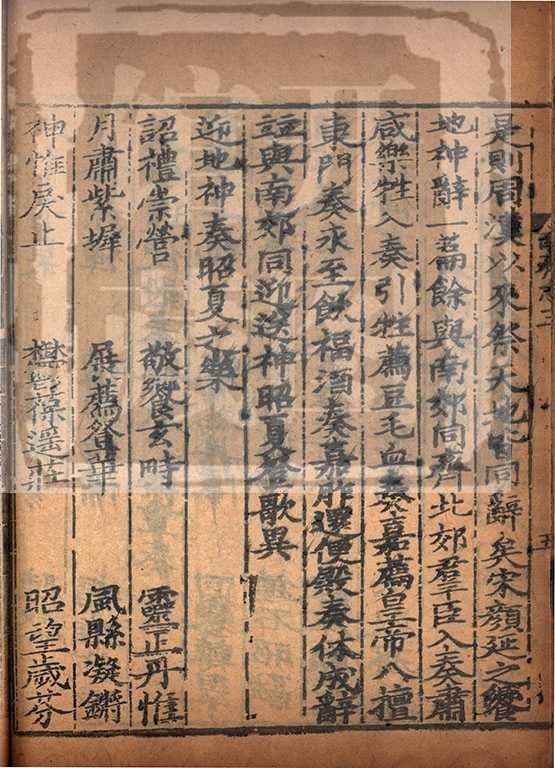 是則周漢以來祭天地皆同辭矣宋顏延之饗
地神辭一篇餘與南郊同齊北郊羣臣入奏肅
咸樂牲入奏引牲薦豆毛血奏嘉薦皇帝入壇
東門奏永至飲福酒奏嘉胙還便殿奏休成辭
竝與南郊同迎送神昭夏登歌異
迎地神奏昭夏之樂
詔禮崇營 敬饗玄時 靈正丹惟
月肅紫墀 展薦登華 風縣凝鏘
神惟戾止 鬱葆遥莊 昭望歲芬